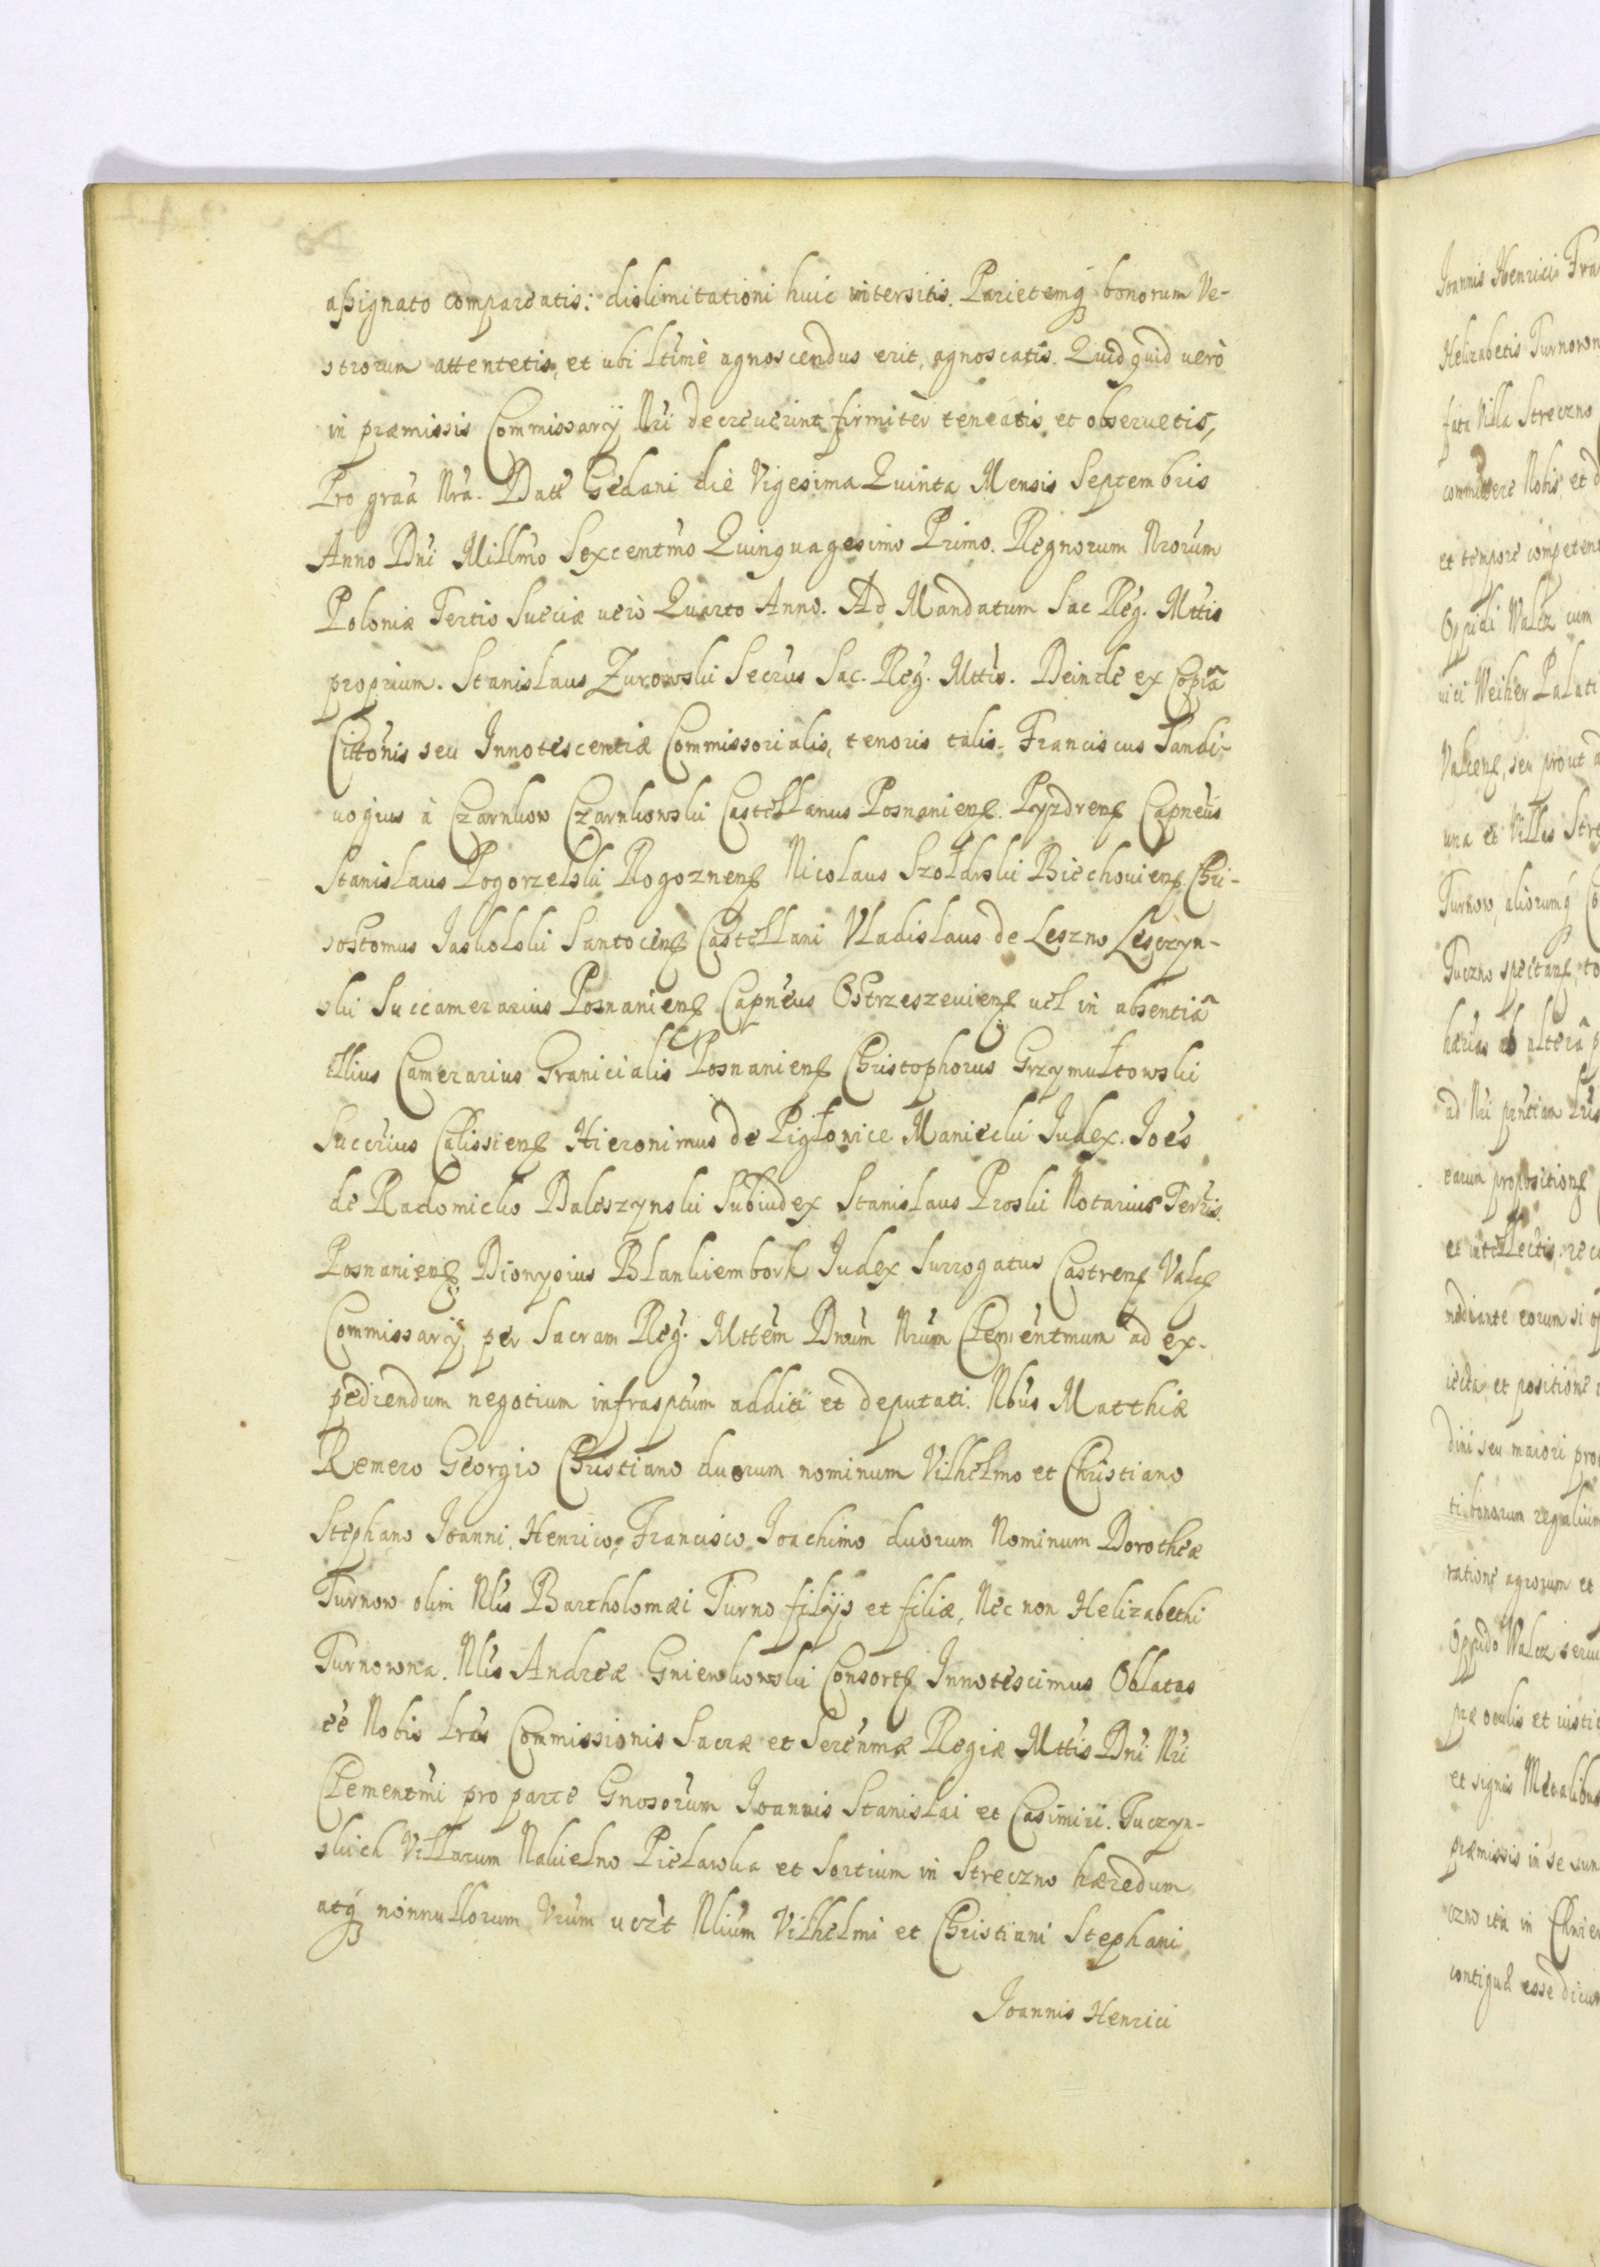 assignato compareatis: dislimitationi huic intersitis. Parietemq bonorum Ve-
strorum attentetis, et ubi ltimè agnoscendus erit, agnoscatis. Quidquid verò
in præmissis Commissarÿ Nri decreuerint firmitèr teneatis et obseruetis,
Pro graã Nrã. Datt Gedani die Vigesima Quinta Mensis Septembris
Anno Dni Millmo Sexcentmo Quinquagesimo Primo. Regnorum Nrorum
Poloniæ Tertio Sueciæ uerò Quarto Anno. Ad Mandatum Sac Reg. Mttis
proprium. Stanislaus Zurowski Secrus Sac. Reg. Mttis. Deinde ex Copiâ
Cittonis seu Innotescentiæ Commissorialis, tenoris talis. Franciscus Sandi-
uogius à Czarnkow Czarnkowski Castellanus Posnaniens. Pyzdrens Capneus
Stanislaus Pogorzelski Rogoznens Nicolaus Szołdrski Biechouiens Chri-
sostomus Jaskolski Santocens Castellani Vladislaus de Leszno Lesczyn-
ski Succamerarius Posnaniens Capneus Ostrzeszeuiens uel in absentiâ
illius Camerarius Granicialis Posnaniens Christophorus Grzymułtowski
Succrius Calissiens Hieronimus de Piglowice Maniecki Judex. Joes
de Radomicko Baleszynski Subiudex Stanislaus Proski Notarius Terris.
Posnaniens Dionysius Blankiembork Judex Surrogatus Castrens Valc
Commissarÿ per Sacram Reg. Mttem Dnum Nrum Clementmum ad ex-
pediendum negotium infrasptum additi et deputati. Nbus Matthiæ
Remero Georgio Christiano duorum nominum Vilhelmo et Christiano
Stephano Joanni. Henrico, Francisco Joachimo duorum Nominum Dorotheæ
Turnow olim Nlis Bartholomæi Turno filÿs et filiæ, Nec non Helizabethi
Turnowna. Nlis Andreæ Gniewkowski Consorts Innotescimus Oblatas
eè Nobis lras Commissionis Sacræ et Serenmæ Regiæ Mttis Dni Nri
Clementmi pro parte Gnosorum Joannis Stanislai et Casimiri. Tuczyn-
skich Villarum Nakielno Pielawka et Sortium in Streczno hæredum
atq nonnullorum Vrum uert Nlium Vilhelmi et Christiani Stephani
Joannis Henrici
Joannis Henrici
Helizabetis
Streczno
Nobis et
et tempore
Oppidi Walcz cum
Weiher Palati
seu prout
una et Villis
Turnow, aliorumq
Tuczno
ab alterâ
ad Nri
earum
mediante eorum si
et positione
seu maiori
bonorum regalium
agrorum et
Oppido Walcz
præ oculis et
et signis Metalibus
præmissis in se
ita in
esse